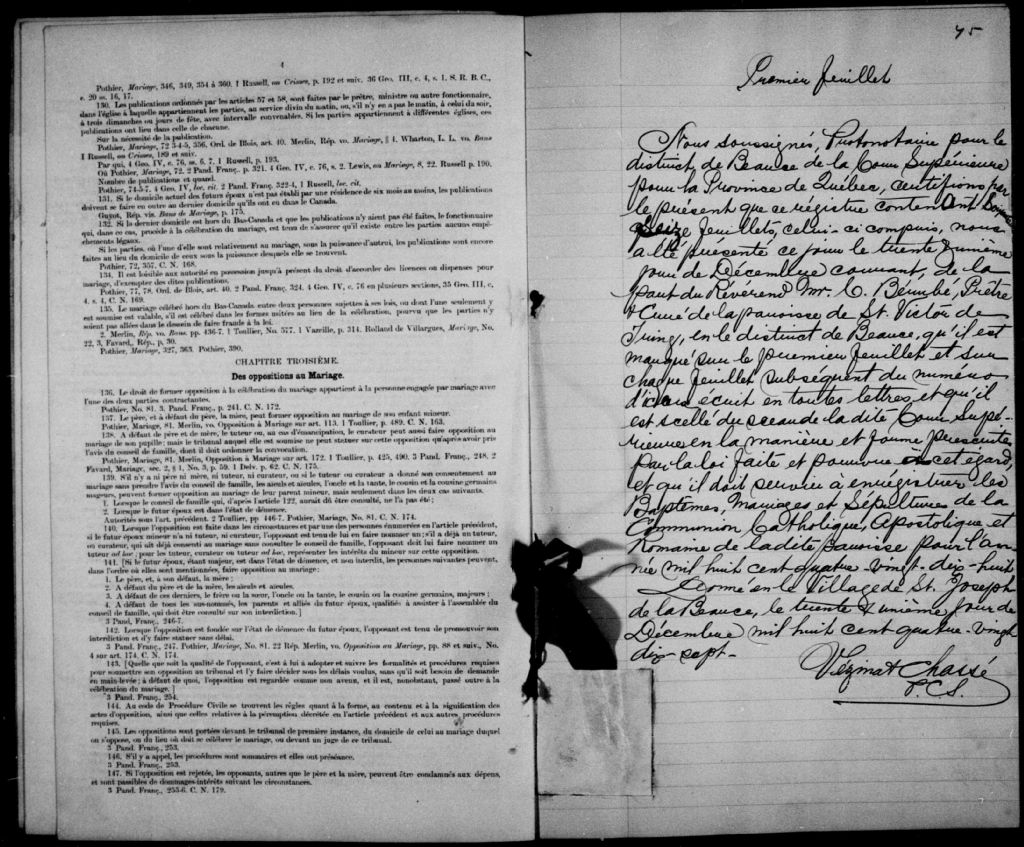 4
Pothier, Mariage, 346, 349, 354 à 360. 1 Russell, on Crimes, p. 192 et suiv. 36 Geo. III, c. 4, s. 1. S. R. B. C.,
c. 20 ss. 16, 17.
130. Les publications ordonnés par les articles 57 et 58, sont faites par le prêtre, ministre ou autre fonctionnaire,
dans l'église à laquelle appartiennent les parties, au service divin du matin, ou, s'il n'y en a pas le matin, à celui du soir,
à trois dimanches ou jours de fête, avec intervalle convenables. Si les parties appartiennent à différentes églises, ces
publications ont lieu dans celle de chacune.
Sur la nécessité de la publication.
Pothier, Mariage, 72 3-4-5, 356, Ord. de Blois, art. 40. Merlin, Rép. vo. Mariage, § 1. Wharton, L. L. vo. Bans
1 Russell, on Crimes, 189 et suiv.
Par qui, 4 Geo. IV, c. 76, ss. 6, 7. 1 Russell, p. 193.
Où Pothier, Mariage, 72. 2 Pand. Franç. p. 321. 4 Geo. IV, c. 76, s. 2. Lewis, on Mariage, 8, 22. Russell p. 190.
Nombre de publications et quand.
Pothier, 74-5-7. 4 Geo. IV, loc. cit. 2 Pand. Franç. 322-4, 1 Russell, loc. cit.
131. Si le domicile actuel des futurs époux n'est pas établi par une résidence de six mois au moins, les publications
doivent se faire en outre au dernier domicile qu'ils ont eu dans le Canada.
Guyot, Rép. vis. Bans de Mariage, p. 175.
132. Si le dernier domicile est hors du Bas-Canada et que les publications n'y aient pas été faites, le fonctionnaire
qui, dans ce cas, procède à la célébration du mariage, est tenu de s'assurer qu'il existe entre les parties aucuns empê-
chements légaux.
Si les parties, où l'une d'elle sont relativement au mariage, sous la puissance d'autrui, les publications sont encore
faites au lieu du domicile de ceux sous la puissance desquels elle se trouvent.
Pothier, 72, 357. C. N. 168.
134. Il est loisible aux autorité en possession jusqu'à présent du droit d'accorder des licences ou dispenses pour
mariage, d'exempter des dites publications.
Pothier, 77, 78. Ord. de Blois, art. 40. 2 Pand. Franç. 324. 4 Geo. IV, c. 76 en plusieurs sections, 35 Geo. III, c.
4, s. 4, C. N. 169.
135. Le mariage célébré hors du Bas-Canada entre deux personnes sujettes à ses lois, ou dont l'une seulement y
est soumise est valable, s'il est célébré dans les formes usitées au lieu de la célébration, pourvu que les parties n'y
soient pas allées dans le dessein de faire fraude à la loi.
2. Merlin, Rép. vo. Bans. pp. 436-7. 1 Toullier, No. 577. 1 Vazille, p. 314. Rolland de Villargues, Mariage, No.
22, 3, Favard., Rép., p. 30.
Pothier, Mariage, 327, 363. Pothier, 390.
CHAPITRE TROISIÈME.
Des oppositions au Mariage.
136. Le droit de former opposition à la célébration du mariage appartient à la personne engagée par mariage avec
l'une des deux parties contractantes.
Pothier, No. 81. 3. Pand. Franç., p. 241. C. N. 172.
137. Le père, et à défaut du père, la mère, peut former opposition au mariage de son enfant mineur.
Pothier, Mariage, 81. Merlin, vo. Opposition à Mariage sur art. 113. 1 Toullier, p. 489. C. N. 163.
138. A défaut de père et de mère, le tuteur ou, au cas d'émancipation, le curateur peut aussi faire opposition au
mariage de son pupille; mais le tribunal auquel elle est soumise ne peut statuer sur cette opposition qu'après avoir pris
l'avis du conseil de famille, dont il doit ordonner la convocation.
Pothier, Mariage, 81. Merlin, Opposition à Mariage sur art. 172. 1 Toullier, p. 425, 490. 3 Pand. Franç., 248. 2
Favard, Mariage, sec. 2, § 1, No. 3, p. 59. 1 Delv. p. 62. C. N. 175.
139. S'il n'y a ni père ni mère, ni tuteur, ni curateur, ou si le tuteur ou curateur a donné son consentement au
mariage sans prendre l'avis du conseil de famille, les aieuls et aieules, l'oncle et la tante, le cousin et la cousine germains
mageurs, peuvent former opposition au mariage de leur parent mineur, mais seulement dans les deux cas suivants.
1. Lorsque le conseil de famille qui, d'après l'article 122, aurait dû être consulté, ne l'a pas été;
2. Lorsque le futur époux est dans l'état de démence.
Autorités sous l'art. précédent. 2 Toullier, pp 446-7. Pothier, Mariage, No. 81. C. N. 174.
140. Lorsque l'opposition est faite dans les circonstances et par une des personnes énumérées en l'article précédent,
si le futur époux mineur n'a ni tuteur, ni curateur, l'opposant est tenu de lui en faire nommer un; s'il a déjà un tuteur,
ou curateur, qui ait déjà consenti au mariage sans consulter le conseil de famille, l'opposant doit lui faire nommer un
tuteur ad hoc; pour les tuteur, curateur ou tuteur ad hoc, représenter les intérêts du mineur sur cette opposition.
141. [Si le futur époux, étant majeur, est dans l'état de démence, et non interdit, les personnes suivantes peuvent,
dans l'ordre où elles sont mentionnées, faire opposition au mariage:
1. Le père, et, à son défaut, la mère;
2. A défaut du père et de la mère, les aieuls et aieules.
3. A défaut de ces derniers, le frère ou la sœur, l'oncle ou la tante, le cousin ou la cousine germains, majeurs;
4. A défaut de tous les sus-nommés, les parents et alliés du futur époux, qualifiés à assister à l'assemblée du
conseil de famille, qui doit être consulté sur son interdiction.]
3 Pand. Franç., 246-7.
142. Lorsque l'opposition est fondée sur l'état de démence du futur époux, l'opposant est tenu de promouvoir son
interdiction et d'y faire statuer sans délai.
3 Pand. Franç., 247. Pothier, Mariage, No. 81. 22 Rép. Merlin, vo. Opposition au Mariage, pp. 88 et suiv., No.
4 sur art. 174. C. N. 174.
143. [Quelle que soit la qualité de l'opposant, c'est à lui à adopter et suivre les formalités et procédures requises
pour soumettre son opposition au tribunal et l'y faire décider sous les délais voulus, sans qu'il soit besoin de demande
en main-levée; à défaut de quoi, l'opposition est regardée comme non avenu, et il est, nonobstant, passé outre à la
célébration du mariage.]
3 Pand. Franç., 254.
144. Au code de Procédure Civile se trouvent les règles quant à la forme, au contenu et à la signification des
actes d'opposition, ainsi que celles relatives à la péremption décrétée en l'article précédent et aux autres procédures
requises.
145. Les oppositions sont portées devant le tribunal de première instance, du domicile de celui au mariage duquel
on s'oppose, ou du lieu où doit se célébrer le mariage, ou devant un juge de ce tribunal.
3 Pand. Franç., 253.
146. S'il y a appel, les procédures sont sommaires et elles ont préséance.
3 Pand. Franç., 253.
147. Si l'opposition est rejetée, les opposants, autres que le père et la mère, peuvent être condamnés aux dépens,
et sont passibles de dommages-intérêts suivant les circonstances.
3 Pand. Franç., 253-6. C. N. 179.
45
Premier feuillet
Nous soussignés, Protonotaire pour le
district de Beauce de la Cour Supérieure
pour la Province de Québec, certifions par
le présent que ce régistre contenant
seize feuillets, celui-ci compris, nous
a été présenté ce jour le trente & unième
jour de Décembre courant, de la
part du Révérend Mr. C. Bérubé, Prêtre
& Curé de la paroisse de St. Victor de
Tring, en le district de Beauce, qu'il est
marqué sur le premier feuillet et sur
chaque feuillet subséquent du numéro
d'iceux écrit en toutes lettres, et qu'il
est scellé du sceau de la dite Cour Supé-
rieure en la manière et forme prescrites
par la loi faite et pourvue à cet égard,
et qu'il doit servir à enrégistrer les
Baptêmes, Mariages et Sépultures de la
Communion Catholique, Apostolique et
Romaine de la dite paroisse pour l'an-
née mil huit cent quatre-vingt-dix-huit
Donné en le Village de St. Joseph
de la Beauce, le trente & unième jour de
Décembre mil huit cent quatre-vingt
dix-sept-
Vézina & Chassé
P.C.S.